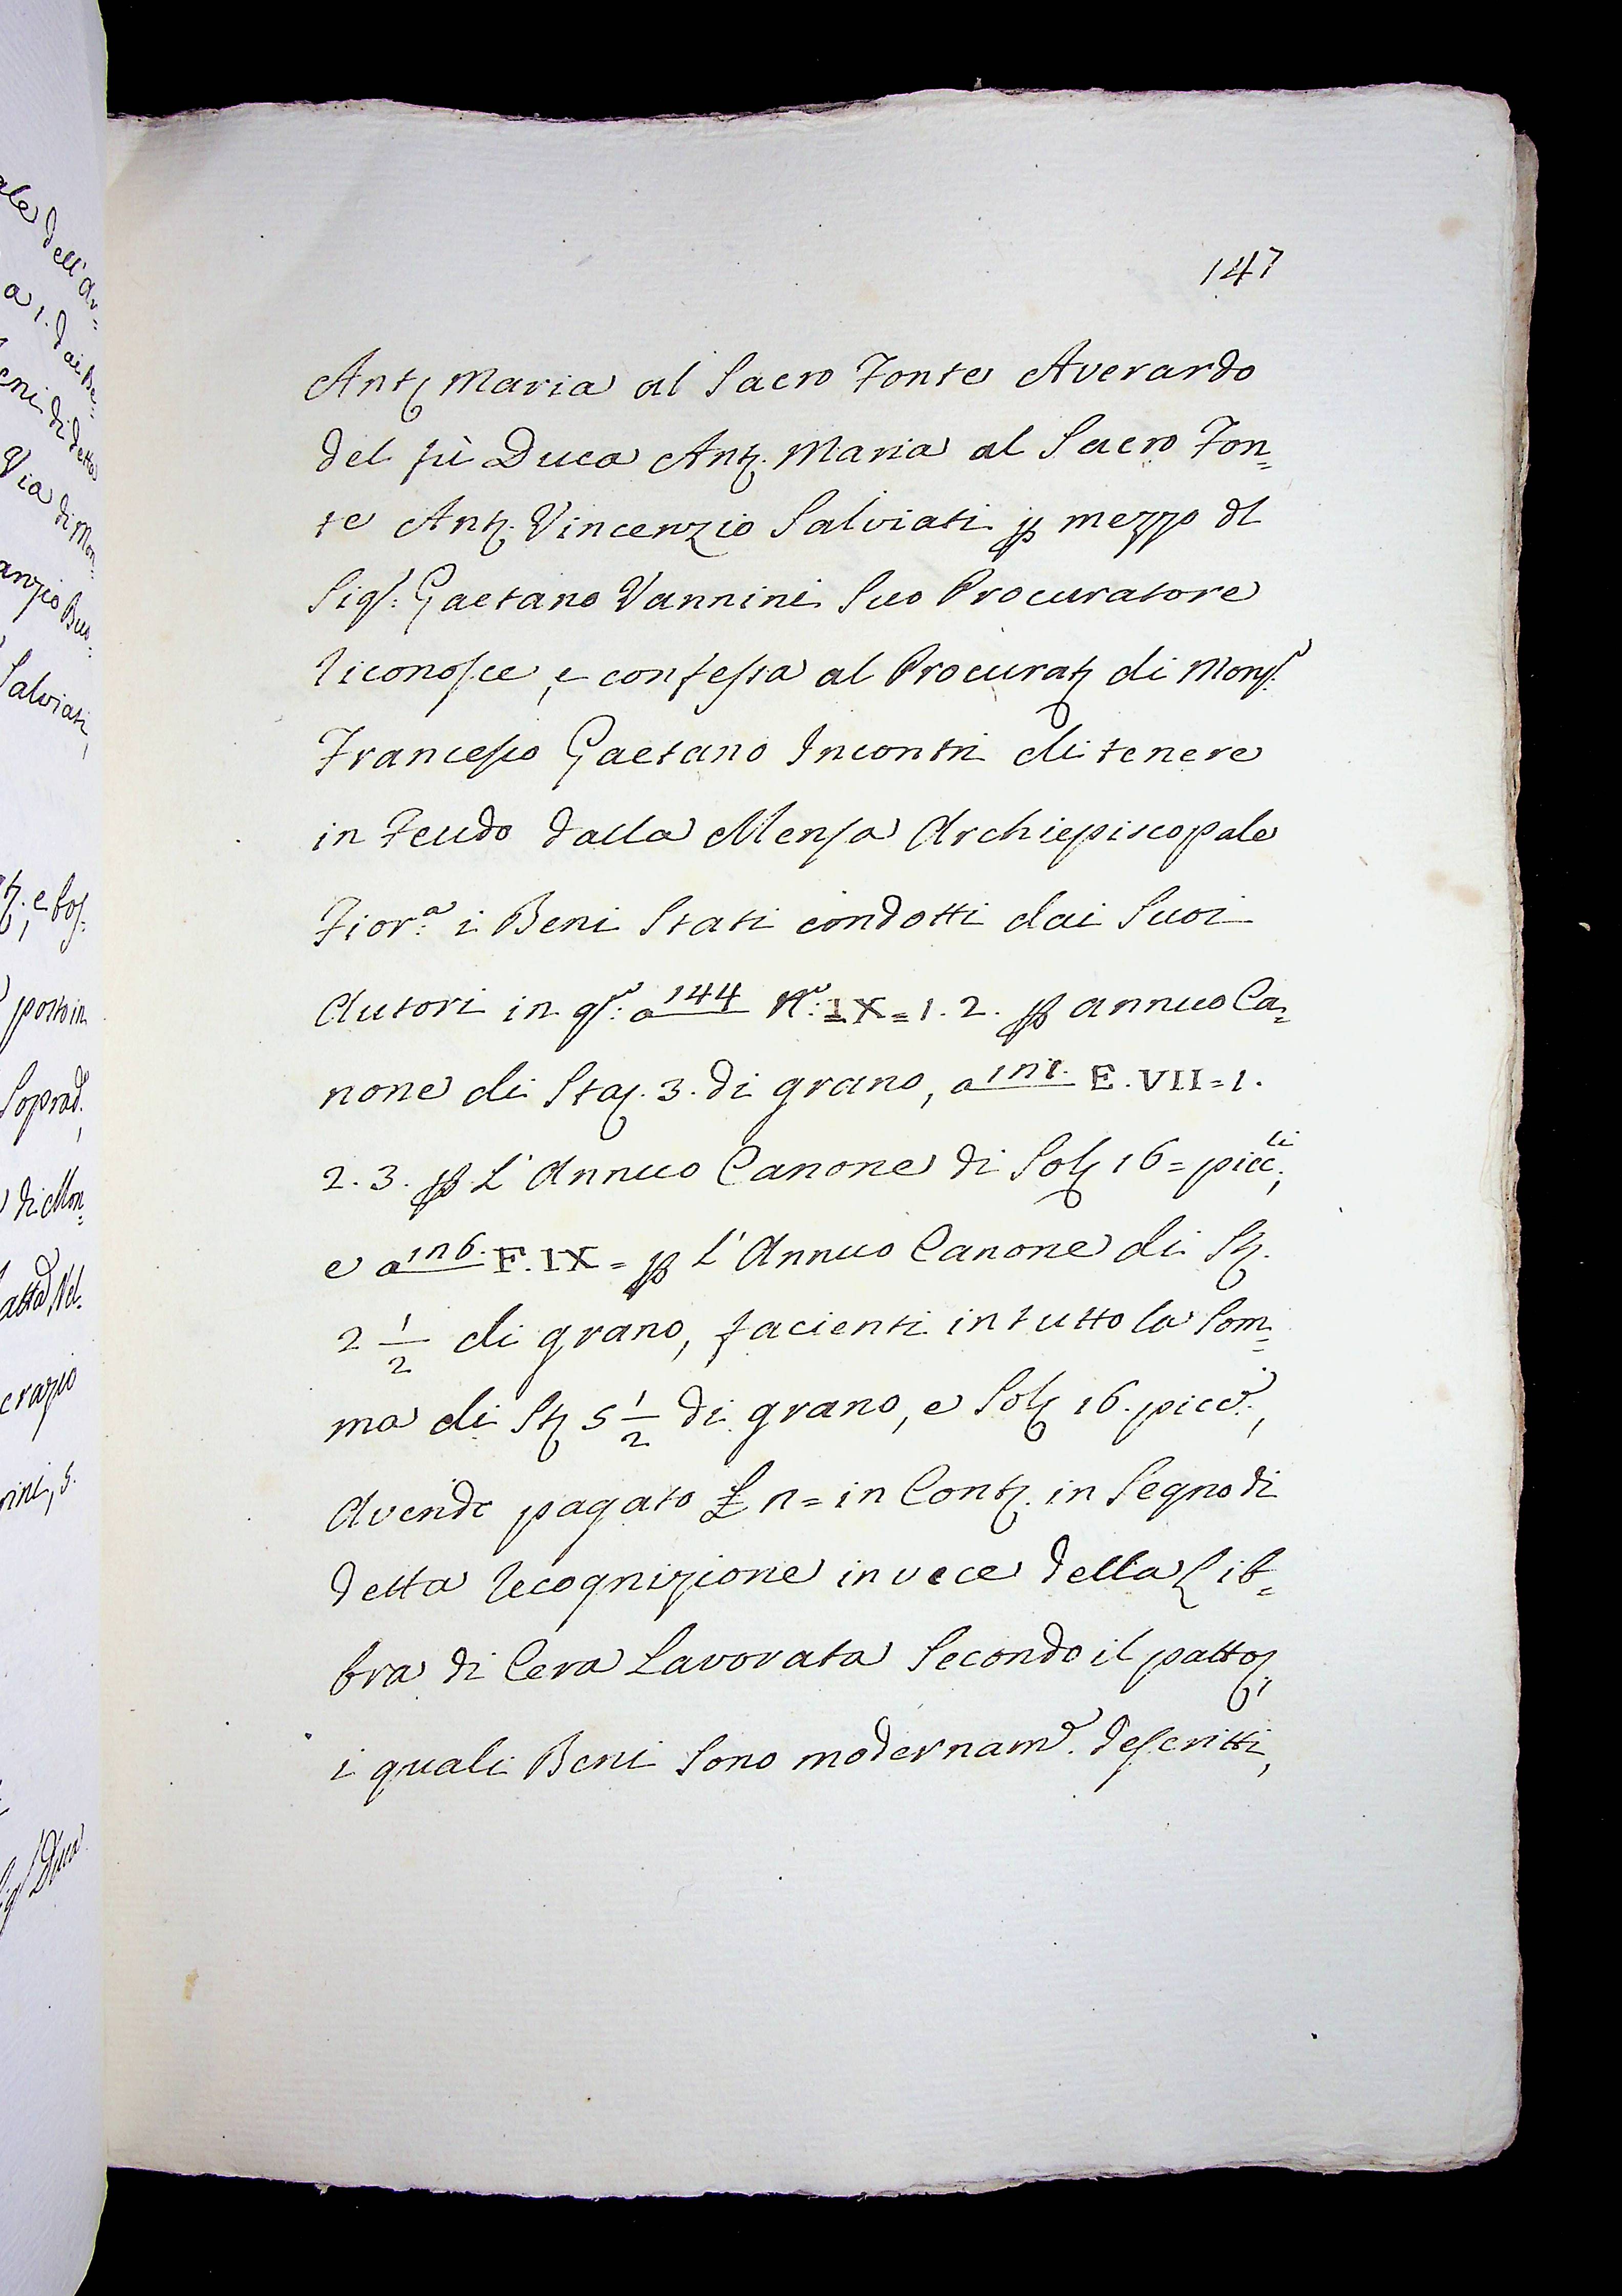 147
Ant. Maria al Sacro Fonte Averardo
del fù Duca Ant. Maria al Sacro Fon=
te Ant. Vincenzio Salviati p mezzo dl
Sigr: Gaetano Vannini Suo Procuratore
riconosce, e confessa al Procurat. di Monsr:
Francesco Gaetano Incontri di tenere
in Feudo dalla Mensa Archiepiscopale
Fior:a i Beni Stati condotti dai Suoi
Autori in qto: a 144 No: IX=1.2. p annuo Ca=
none di Sta. 3. di grano, a 151. E.VII=1.
2.3. p L'Annuo Canone di Sol. 16= picc:li,
e a 156. F.IX= p L'Annuo Canone di St.
2 1/2 di grano, facienti in tutto la Som=
ma di St. 5 1/2 di grano, e Sol. 16. picc:,
Avendo pagato £ n= in Cont. in Segno di
detta recognizione in vece della Lib=
bra di Cera Lavorata Secondo il patto,
i quali Beni Sono modernam.e descritti,
ale dell'Ar=
a 1. dai Be=
eni di detta
Via di Mon=
anzio Buo=
Salviati,
posto in
Soprad.,
di Mon=
crazio
nini, s.
Duca